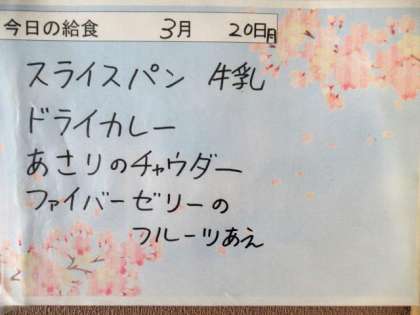 今日の給食 3月 20日月
スライスパン 牛乳
ドライカレー
あさりのチャウダー
ファイバーゼリーの
フルーツあえ